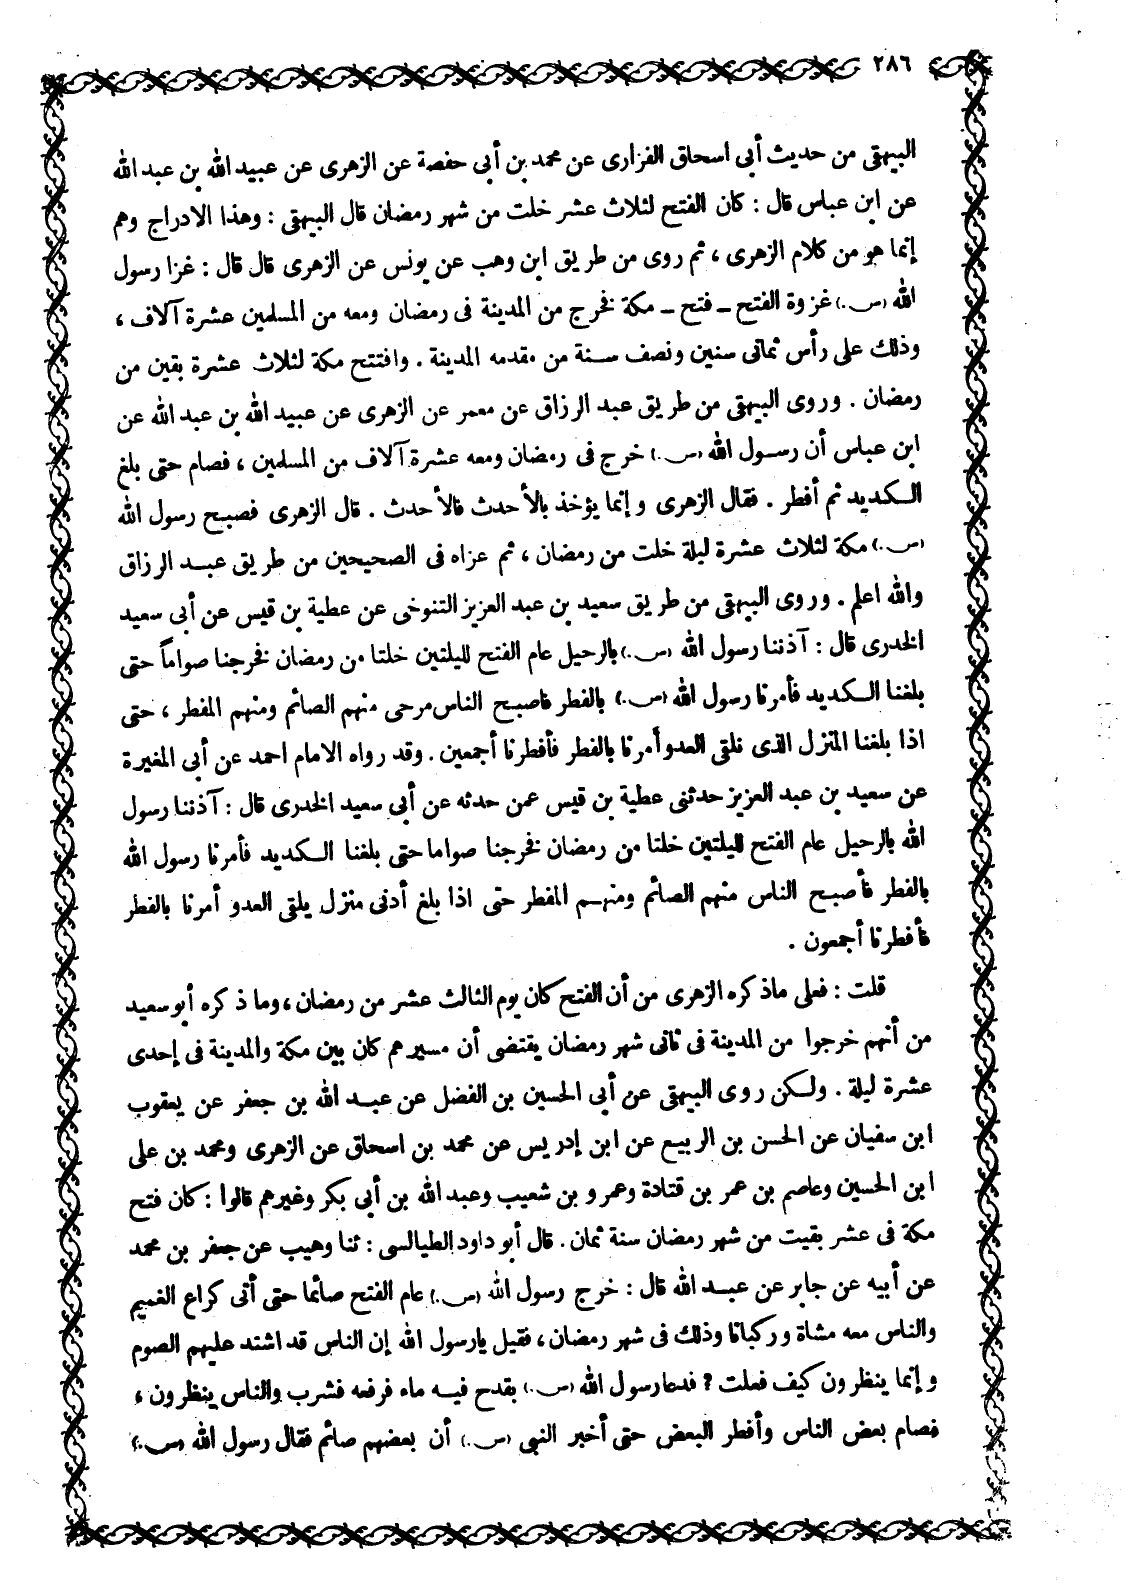 ٢٨٦
البيهقى من حديث أبى اسحاق الفزارى عن محمد بن أبى حفصة عن الزهرى عن عبيد الله بن عبد الله
عن ابن عباس قال : كان الفتح لثلاث عشر خلت من شهر رمضان قال البيهقى : وهذا الادراج وهم
إنما هو من كلام الزهرى ، ثم روى من طريق ابن وهب عن يونس عن الزهرى قال قال : غزا رسول
الله (س.) غزوة الفتح ــ فتح ــ مكة فخرج من المدينة فى رمضان ومعه من المسلمين عشرة آلاف ،
وذلك على رأس ثمانى سنين ونصف سنة من مقدمه المدينة . وافتتح مكة لثلاث عشرة بقين من
رمضان . وروى البيهقى من طريق عبد الرزاق عن معمر عن الزهرى عن عبيد الله بن عبد الله عن
ابن عباس أن رسول الله (س.) خرج فى رمضان ومعه عشرة آلاف من المسلمين ، فصام حتى بلغ
الكديد ثم أفطر . فقال الزهرى و إنما يؤخذ بالأحدث فالأحدث . قال الزهرى فصبح رسول الله
(س.) مكة لثلاث عشرة ليلة خلت من رمضان ، ثم عزاه فى الصحيحين من طريق عبد الرزاق
والله اعلم . وروى البيهقى من طريق سعيد بن عبد العزيز التنوخى عن عطية بن قيس عن أبى سعيد
الخدرى قال : آذننا رسول الله (س.) بالرحيل عام الفتح لليلتين خلتا من رمضان فخرجنا صواماً حتى
بلغنا الكديد فأمرنا رسول الله (س.) بالفطر فاصبح الناس مرحى منهم الصائم ومنهم المفطر ، حتى
اذا بلغنا المنزل الذى نلقى العدو أمرنا بالفطر فأفطرنا أجمعين . وقد رواه الامام احمد عن أبى المغيرة
عن سعيد بن عبد العزيز حدثنى عطية بن قيس عمن حدثه عن أبى سعيد الخدرى قال : آذننا رسول
الله بالرحيل عام الفتح لليلتين خلتا من رمضان فخرجنا صواما حتى بلغنا الكديد فأمرنا رسول الله
بالفطر فأصبح الناس منهم الصائم ومنهم المفطر حتى اذا بلغ أدنى منزل يلقى العدو أمرنا بالفطر
فأفطرنا أجمعون .
قلت : فعلى ماذكره الزهرى من أن الفتح كان يوم الثالث عشر من رمضان ، وما ذكره أبو سعيد
من أنهم خرجوا من المدينة فى ثانى شهر رمضان يقتضى أن مسيرهم كان بين مكة والمدينة فى إحدى
عشرة ليلة . ولكن روى البيهقى عن أبى الحسين بن الفضل عن عبد الله بن جعفر عن يعقوب
ابن سفيان عن الحسن بن الربيع عن ابن إدريس عن محمد بن اسحاق عن الزهرى ومحمد بن على
ابن الحسين وعاصم بن عمر بن قتادة وعمرو بن شعيب وعبد الله بن أبى بكر وغيرهم قالوا : كان فتح
مكة فى عشر بقيت من شهر رمضان سنة ثمان . قال أبو داود الطيالسى : ثنا وهيب عن جعفر بن محمد
عن أبيه عن جابر عن عبد الله قال : خرج رسول الله (س.) عام الفتح صائما حتى أتى كراع الغميم
والناس معه مشاة وركبانا وذلك فى شهر رمضان ، فقيل يارسول الله إن الناس قد اشتد عليهم الصوم
و إنما ينظرون كيف فعلت ? فدعا رسول الله (س.) بقدح فيه ماء فرفعه فشرب والناس ينظرون ،
فصام بعض الناس وأفطر البعض حتى أخبر النبى (س.) أن بعضهم صائم فقال رسول الله (س.)